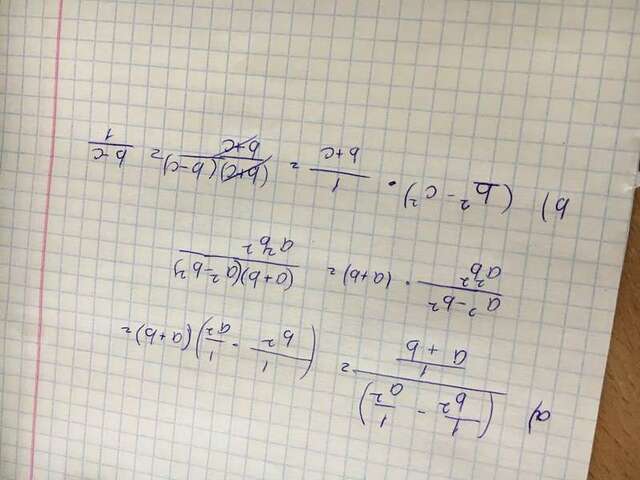 a) (1/b² - 1/a²) / (1/a + b) = (1/b² - 1/a²)(a+b) =
a²-b² / a²b² · (a+b) = (a+b)(a²-b²) / a²b²
b) (b² - c²) · 1/b+c = (b+c)(b-c) / b+c = b-c / 1